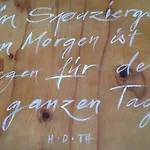 in Spazierga
m Morgen ist
egen für de
ganzen Tag
H·D·TH